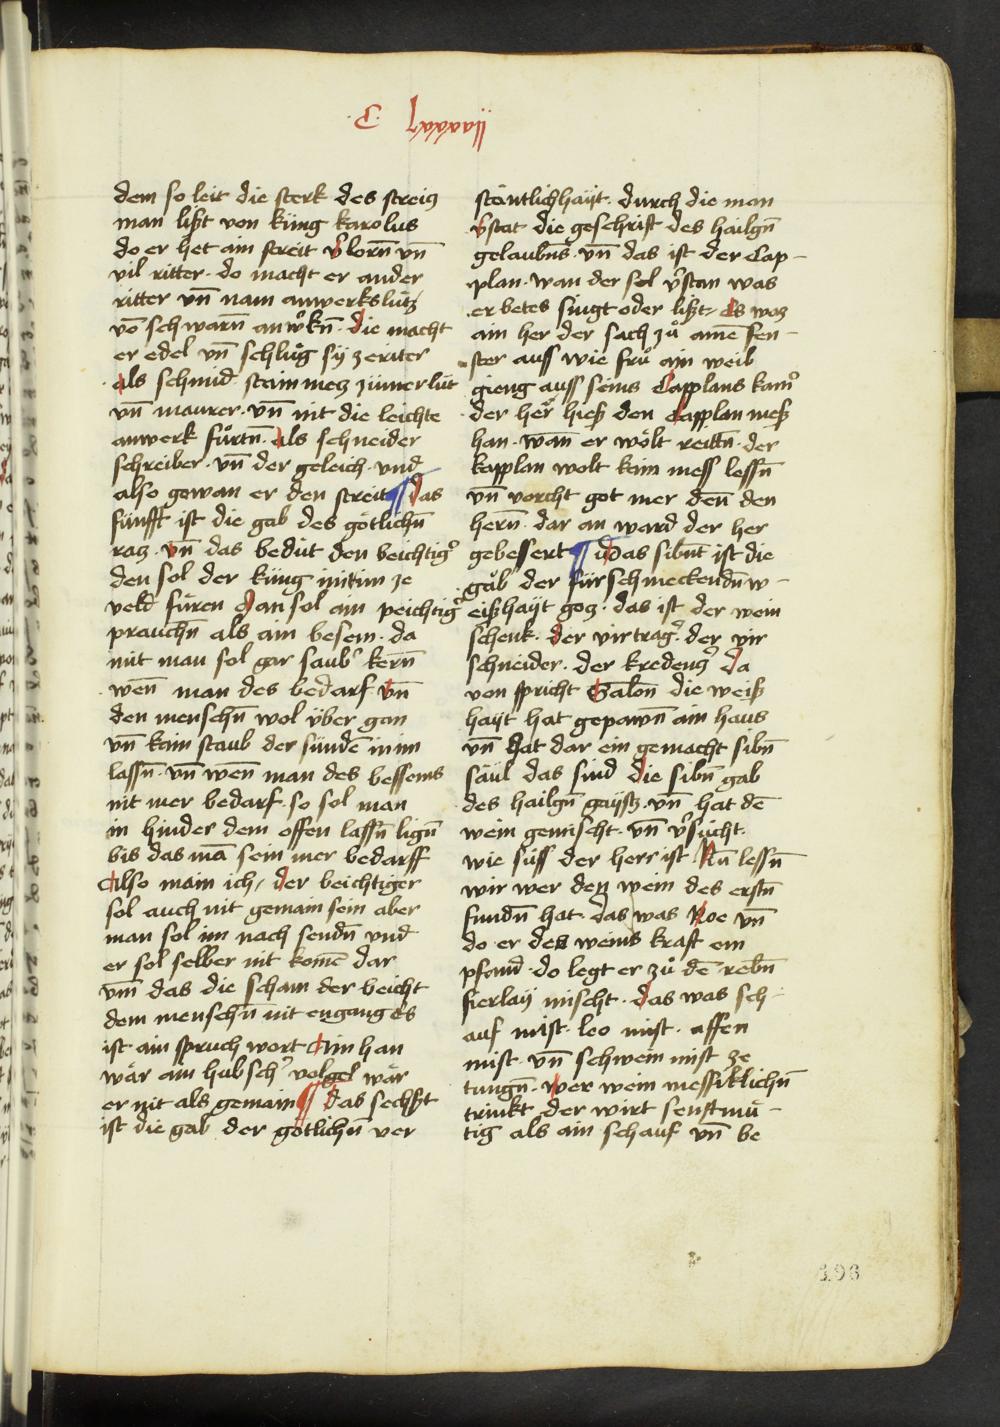 C lxxxxvii
dem so leit die sterk des streiz
man lißt von küng karolus
do er het ain streit v̾lorn̄ vn̄
vil ritter · do macht er ander
ritter vn̄ nam anwerkslütz
vō schwarn̄ anw̾kn̄ · die macht
er edel vn̄ schlůg sÿ ze riter
Als schmid · stainmetz zim̄erlüt
vn̄ maurer · vn̄ nit die leichte
anwerk fůrtn̄ · Als schneider
schreiber · vn̄ der geleich · und
also gewan er den streit ¶ das
fünfft ist die gab des götlichn̄
raz · vn̄ das bedüt den beichtig̾
den sol der küng mit im ze
veld füren Man sol ain peichtig̾
prauchn̄ als ain besem · da
mit man sol gar saub̾ kern̄
wen̄ man des bedarf · vn̄
den menschn̄ wol über gan
vn̄ kain staub der sündē in im
lassn̄ · vn̄ wen̄ man des bessems
nit mer bedarf · so sol man
in hinder dem offen lassn̄ lign̄
bis das mā sein mer bedarff
Also main ich / der beichtiger
sol auch nit gemain sein aber
man sol im nach sendn̄ vnd
er sol selber nit komē dar
vm̄ das die scham der beicht
dem menschn̄ nit engang es
ist ain spruch wort Ain han
wär ain hübsch̾ volgel wär
er nit als gemain ¶ das sechßt
ist die gab der götlichn̄ ver
stäntlichhaÿt · durch die man
v̾stat die geschrift des hailgn̄
gelaubns · vn̄ das ist der Cap-
plan · wan der sol v̾stan was
er betes singt oder lißt / Es waz
ain her der sach zů amē fen-
ster auss wie frů ain weib
gieng auss seins Capplans kam̾
der her̾ hieß den Capplan meß
han · wan̄ er wölt reitn̄ · der
kapplan wolt kain mess lessn̄
vn̄ vorcht got mer den̄ den
hern̄ · dar an ward der her
gebessert ¶ das sibn̄t ist die
gäb der fürschmeckendn̄ w-
eißhaÿt goz · das ist der wein
schenk · der virtrag̾ · der vir
schneider · der kredenz̾ Da
von spricht Salon̄ die weiß
haÿt hat gepawn̄ ain haus
vn̄ hat dar ein gemacht sibn̄
säul das sind die sibn̄ gab
des hailgn̄ gaÿstz · vn̄ hat dē
wein gemischt · vn̄ v̾sücht ·
wie süss der herr ist Nu lessn̄
wir wer den wein des erstn̄
fundn̄ hat · das was Noe vn̄
do er des weins kraft em
pfand · do legt er zů dē rebn̄
fierlaÿ mischt · das was sch-
auf mist · leo mist · affen
mist · vn̄ schwein mist ze
tungn̄ · wer wein messiklichn̄
trinkt der wirt senftmü-
tig als ain schauf vn̄ be
196